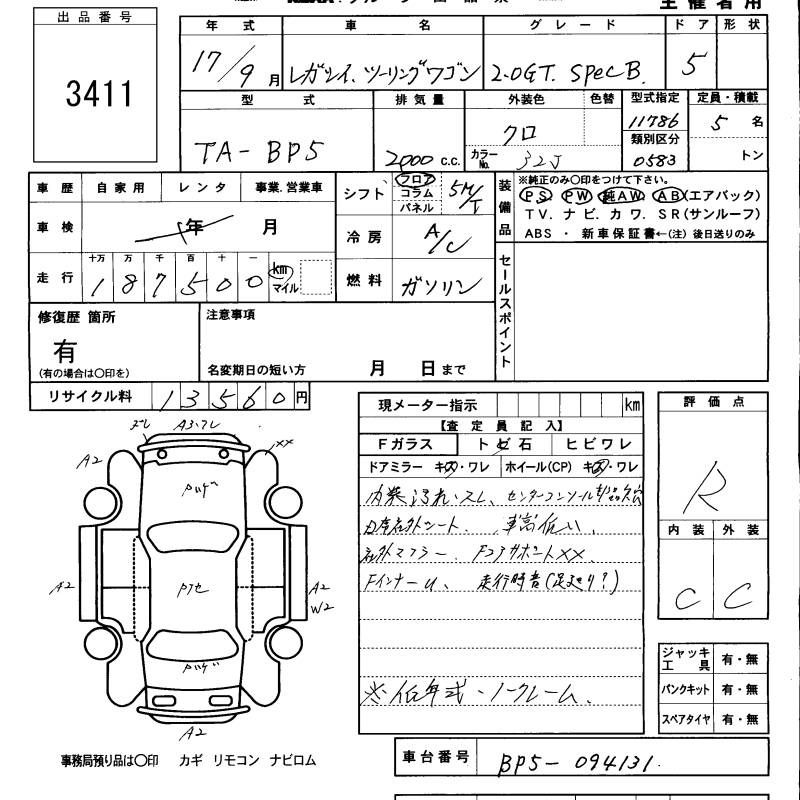 主催者用
出品番号
3411
年式 車名 グレード ドア 形状
17/9月 レガシィ.ツーリングワゴン 2.0GT. SpecB. 5
型式 排気量 外装色 色替 型式指定 定員・積載
TA-BP5 2000 c.c. クロ 11786 5名
カラーNo. 32J 類別区分 0583 トン
車歴 自家用 レンタ 事業.営業車
車検 年 月
走行 十万 万 千 百 十 一
187500 km マイル
シフト フロア コラム パネル 5M/T
冷房 A/C
燃料 ガソリン
装備品
※純正のみ〇印をつけて下さい。
PS PW 純AW AB(エアバック)
TV. ナビ. カワ. SR(サンルーフ)
ABS ・ 新車保証書←(注) 後日送りのみ
セールスポイント
修復歴 箇所
有
(有の場合は〇印を)
注意事項
名変期日の短い方 月 日まで
リサイクル料 13560円
現メーター指示 km
【査定員記入】
Fガラス トビ石 ヒビワレ
ドアミラー キズ・ワレ ホイール(CP) キズ・ワレ
内装汚れ.スレ、センターコンソール
社外マフラー、 FコアサポートXX.
FインナーU、 走行時音(足廻り?)
※低年式・ノークレーム、
評価点
R
内装 外装
C C
ジャッキ 工具 有・無
パンクキット 有・無
スペアタイヤ 有・無
ズレ A3.フレ
A2 XX
A2 A2
W2
A2
事務局預り品は〇印 カギ リモコン ナビロム
車台番号 BP5-094131.